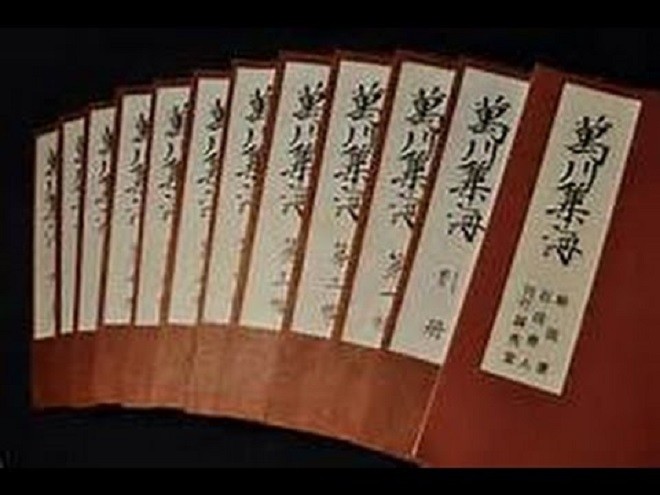 萬川集海
石田善人
誠秀堂
萬川集海 別冊
萬川集海 第一
萬川集海 第二
萬川集海 第三
萬川集海
萬川集海
萬川集海
萬川集海
萬川集
萬川集
萬川集